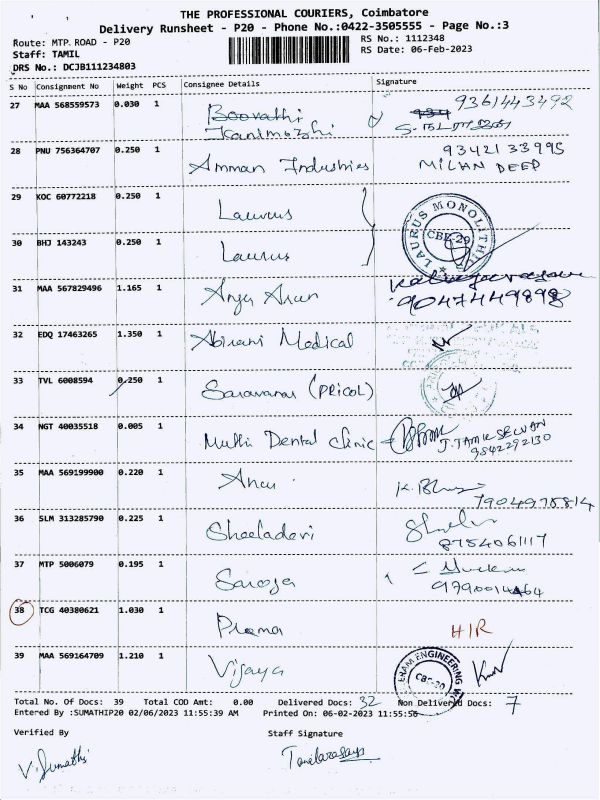 THE PROFESSIONAL COURIERS, Coimbatore
Delivery Runsheet - P20 - Phone No.:0422-3505555 - Page No.:3
Route: MTP. ROAD - P20
Staff: TAMIL
DRS No.: DCJB111234803
RS No.: 1112348
RS Date: 06-Feb-2023
S No Consignment No Weight PCS Consignee Details Signature
27 MAA 568559573 0.030 1 Boovathi Kanimozhi 9361443492
28 PNU 756364707 0.250 1 Amman Industries 9342133995 MILAN DEEP
29 KOC 60772218 0.250 1 Laurus
LAURUS MONOLITHIC CBE-29
30 BHJ 143243 0.250 1 Laurus
31 MAA 567829496 1.165 1 Arun 9047449898
32 EDQ 17463265 1.350 1 Abirami Medical
33 TVL 6008594 0.250 1 Saravanan (PRICOL)
34 NGT 40035518 0.005 1 Muthi Dental Clinic J. TAMILSELVAN 9842292130
35 MAA 569199900 0.220 1 7904975814
36 SLM 313285790 0.225 1 Sheeladevi 8754061117
37 MTP 5006079 0.195 1 Saroja
38 TCG 40380621 1.030 1 Prema H/R
39 MAA 569164709 1.210 1 Vijaya
ENGINEERING CBE-20
Total No. Of Docs: 39 Total COD Amt: 0.00 Delivered Docs: 32 Non Delivered Docs: 7
Entered By :SUMATHIP20 02/06/2023 11:55:39 AM Printed On: 06-02-2023 11:55:56
Verified By Staff Signature
V. Sumathi